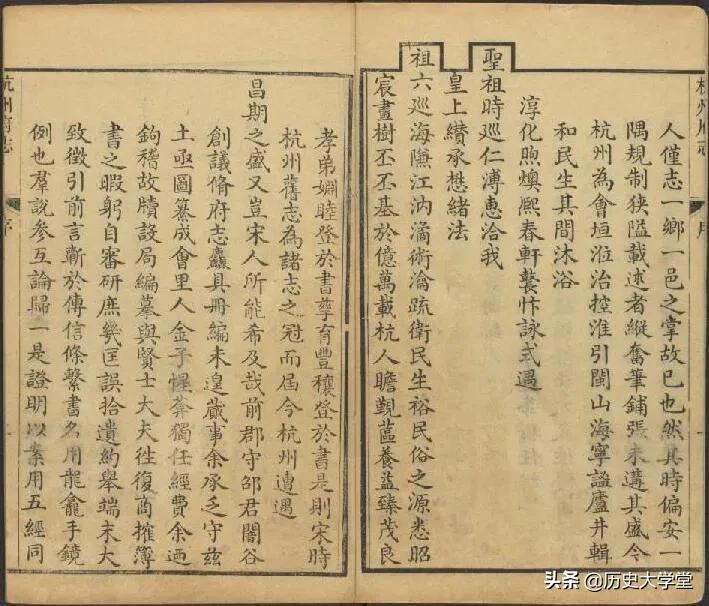 杭州府志
序
人僅志一鄉一邑之掌故已也然其時偏安一
隅規制狹隘載述者縱奮筆鋪張未遘其盛今
杭州為會垣涖治控淮引閩山海寧謐廬井輯
和民生其間沐浴
淳化煦燠熙春軒鼚忭詠式遇
聖祖時巡仁溥惠洽我
皇上纘承懋緒法
祖六巡海隒江汭潏術瀹疏衛民生裕民俗之源悉昭
宸畫樹丕丕基於億萬載杭人瞻覲蕰養益臻茂良
孝弟婣睦登於書孳育豐穰登於書是則宋時
杭州舊志為諸志之冠而屆今杭州遭遇
昌期之盛又豈宋人所能希及哉前郡守邵君闇谷
創議脩府志麤具冊編未遑蕆事余承乏守茲
土亟圖纂成會里人金子惺葊獨任經費余迺
鉤稽故牘設局編摹與賢士大夫徃復商搉簿
書之暇躬自審研庶幾匡誤拾遺約舉端末大
致徵引前言斬於傳信條繫書名用龍龕手鏡
例也羣說參互論歸一是證明以案用五經同
杭州府志
序
头条 @历史大学堂